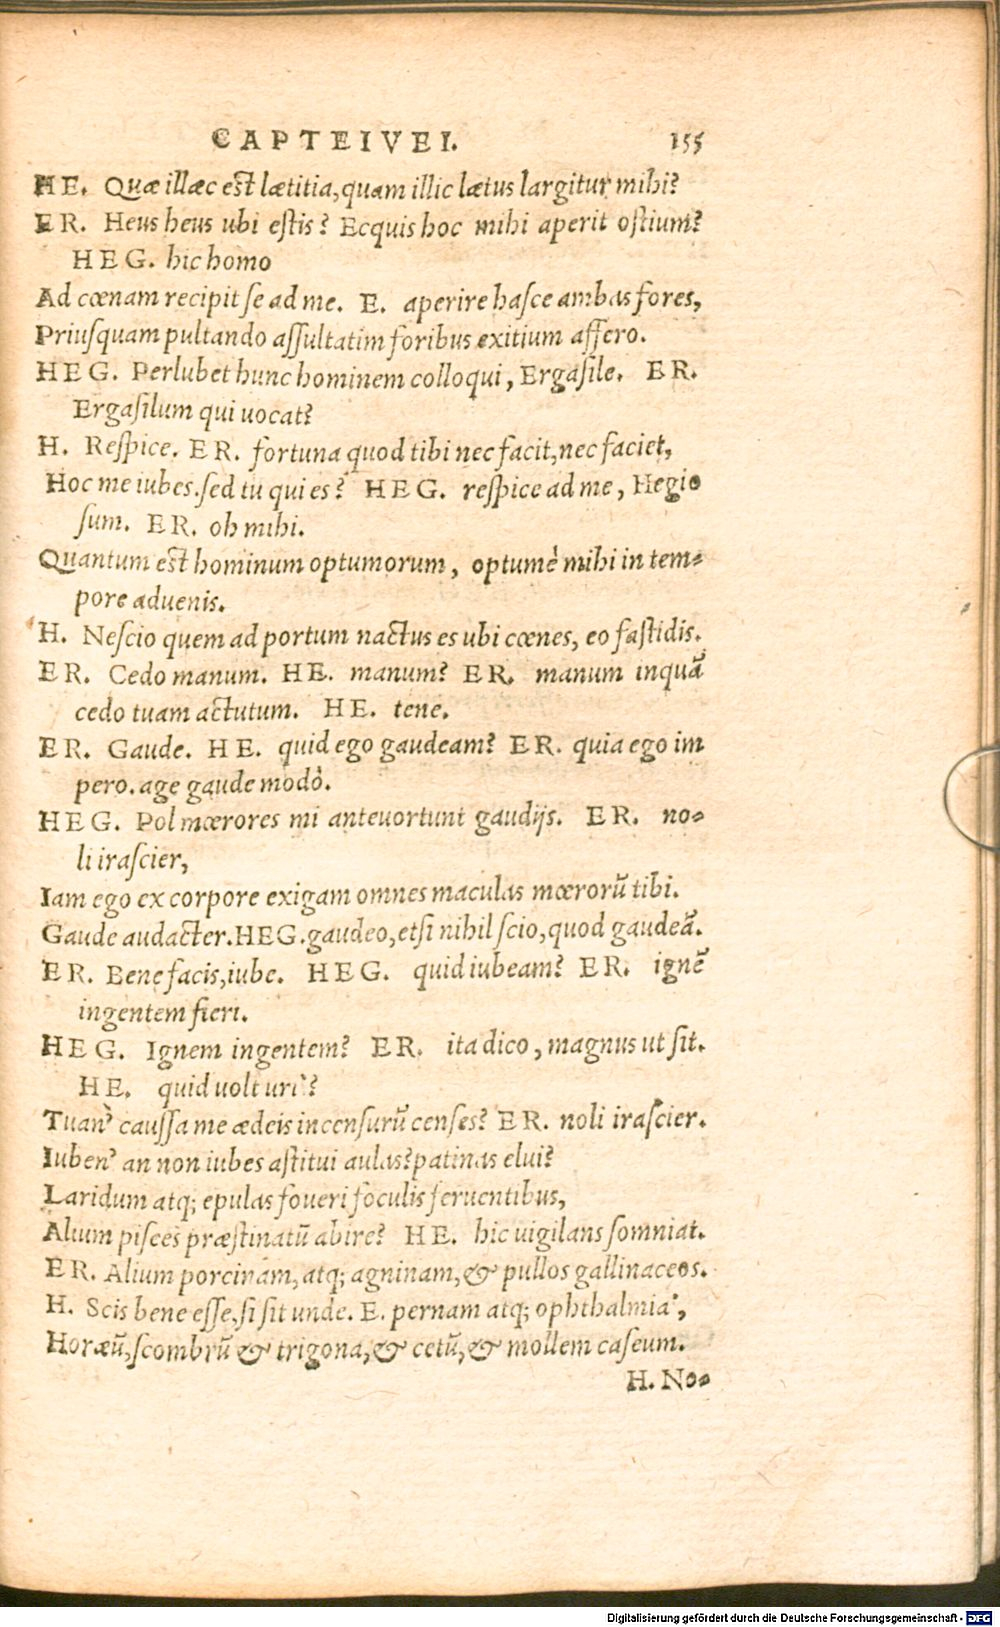 CAPTEIVEI. 155
HE. Quæ illæc est lætitia, quam illic lætus largitur mihi?
ER. Heus heus ubi eſtis? Ecquis hoc mihi aperit oſtium?
HEG. hic homo
Ad cœnam recipit ſe ad me. E. aperire haſce ambas fores,
Priuſquam pultando aſſultatim foribus exitium affero.
HEG. Perlubet hunc hominem colloqui, Ergaſile. ER.
Ergaſilum qui uocat?
H. Reſpice. ER. fortuna quod tibi nec facit, nec faciet,
Hoc me iubes. ſed tu qui es? HEG. reſpice ad me, Hegio
ſum. ER. oh mihi.
Quantum est hominum optumorum, optumè mihi in tem-
pore aduenis.
H. Neſcio quem ad portum nactus es ubi cœnes, eo faſtidis.
ER. Cedo manum. HE. manum? ER. manum inquã
cedo tuam actutum. HE. tene.
ER. Gaude. HE. quid ego gaudeam? ER. quia ego im
pero. age gaude modò.
HEG. Pol mœrores mi anteuortunt gaudijs. ER. no-
li iraſcier,
Iam ego ex corpore exigam omnes maculas mœrorũ tibi.
Gaude audacter. HEG. gaudeo, etſi nihil ſcio, quod gaudeã.
ER. Bene facis, iube. HEG. quid iubeam? ER. ignẽ
ingentem fieri.
HEG. Ignem ingentem? ER. ita dico, magnus ut ſit.
HE. quid uolturi?
Tuan' cauſſa me ædeis incenſurũ cenſes? ER. noli iraſcier.
Iuben' an non iubes aſtitui aulas? patinas elui?
Laridum atq; epulas foueri foculis feruentibus,
Alium piſces præſtinatũ abire? HE. hic uigilans ſomniat.
ER. Alium porcinam, atq; agninam, & pullos gallinaceos.
H. Scis bene eſſe, ſi ſit unde. E. pernam atq; ophthalmiã,
Horæũ, ſcombrũ & trigona, & cetũ, & mollem caſeum.
H. No-
Digitalisierung gefördert durch die Deutsche Forschungsgemeinschaft - DFG